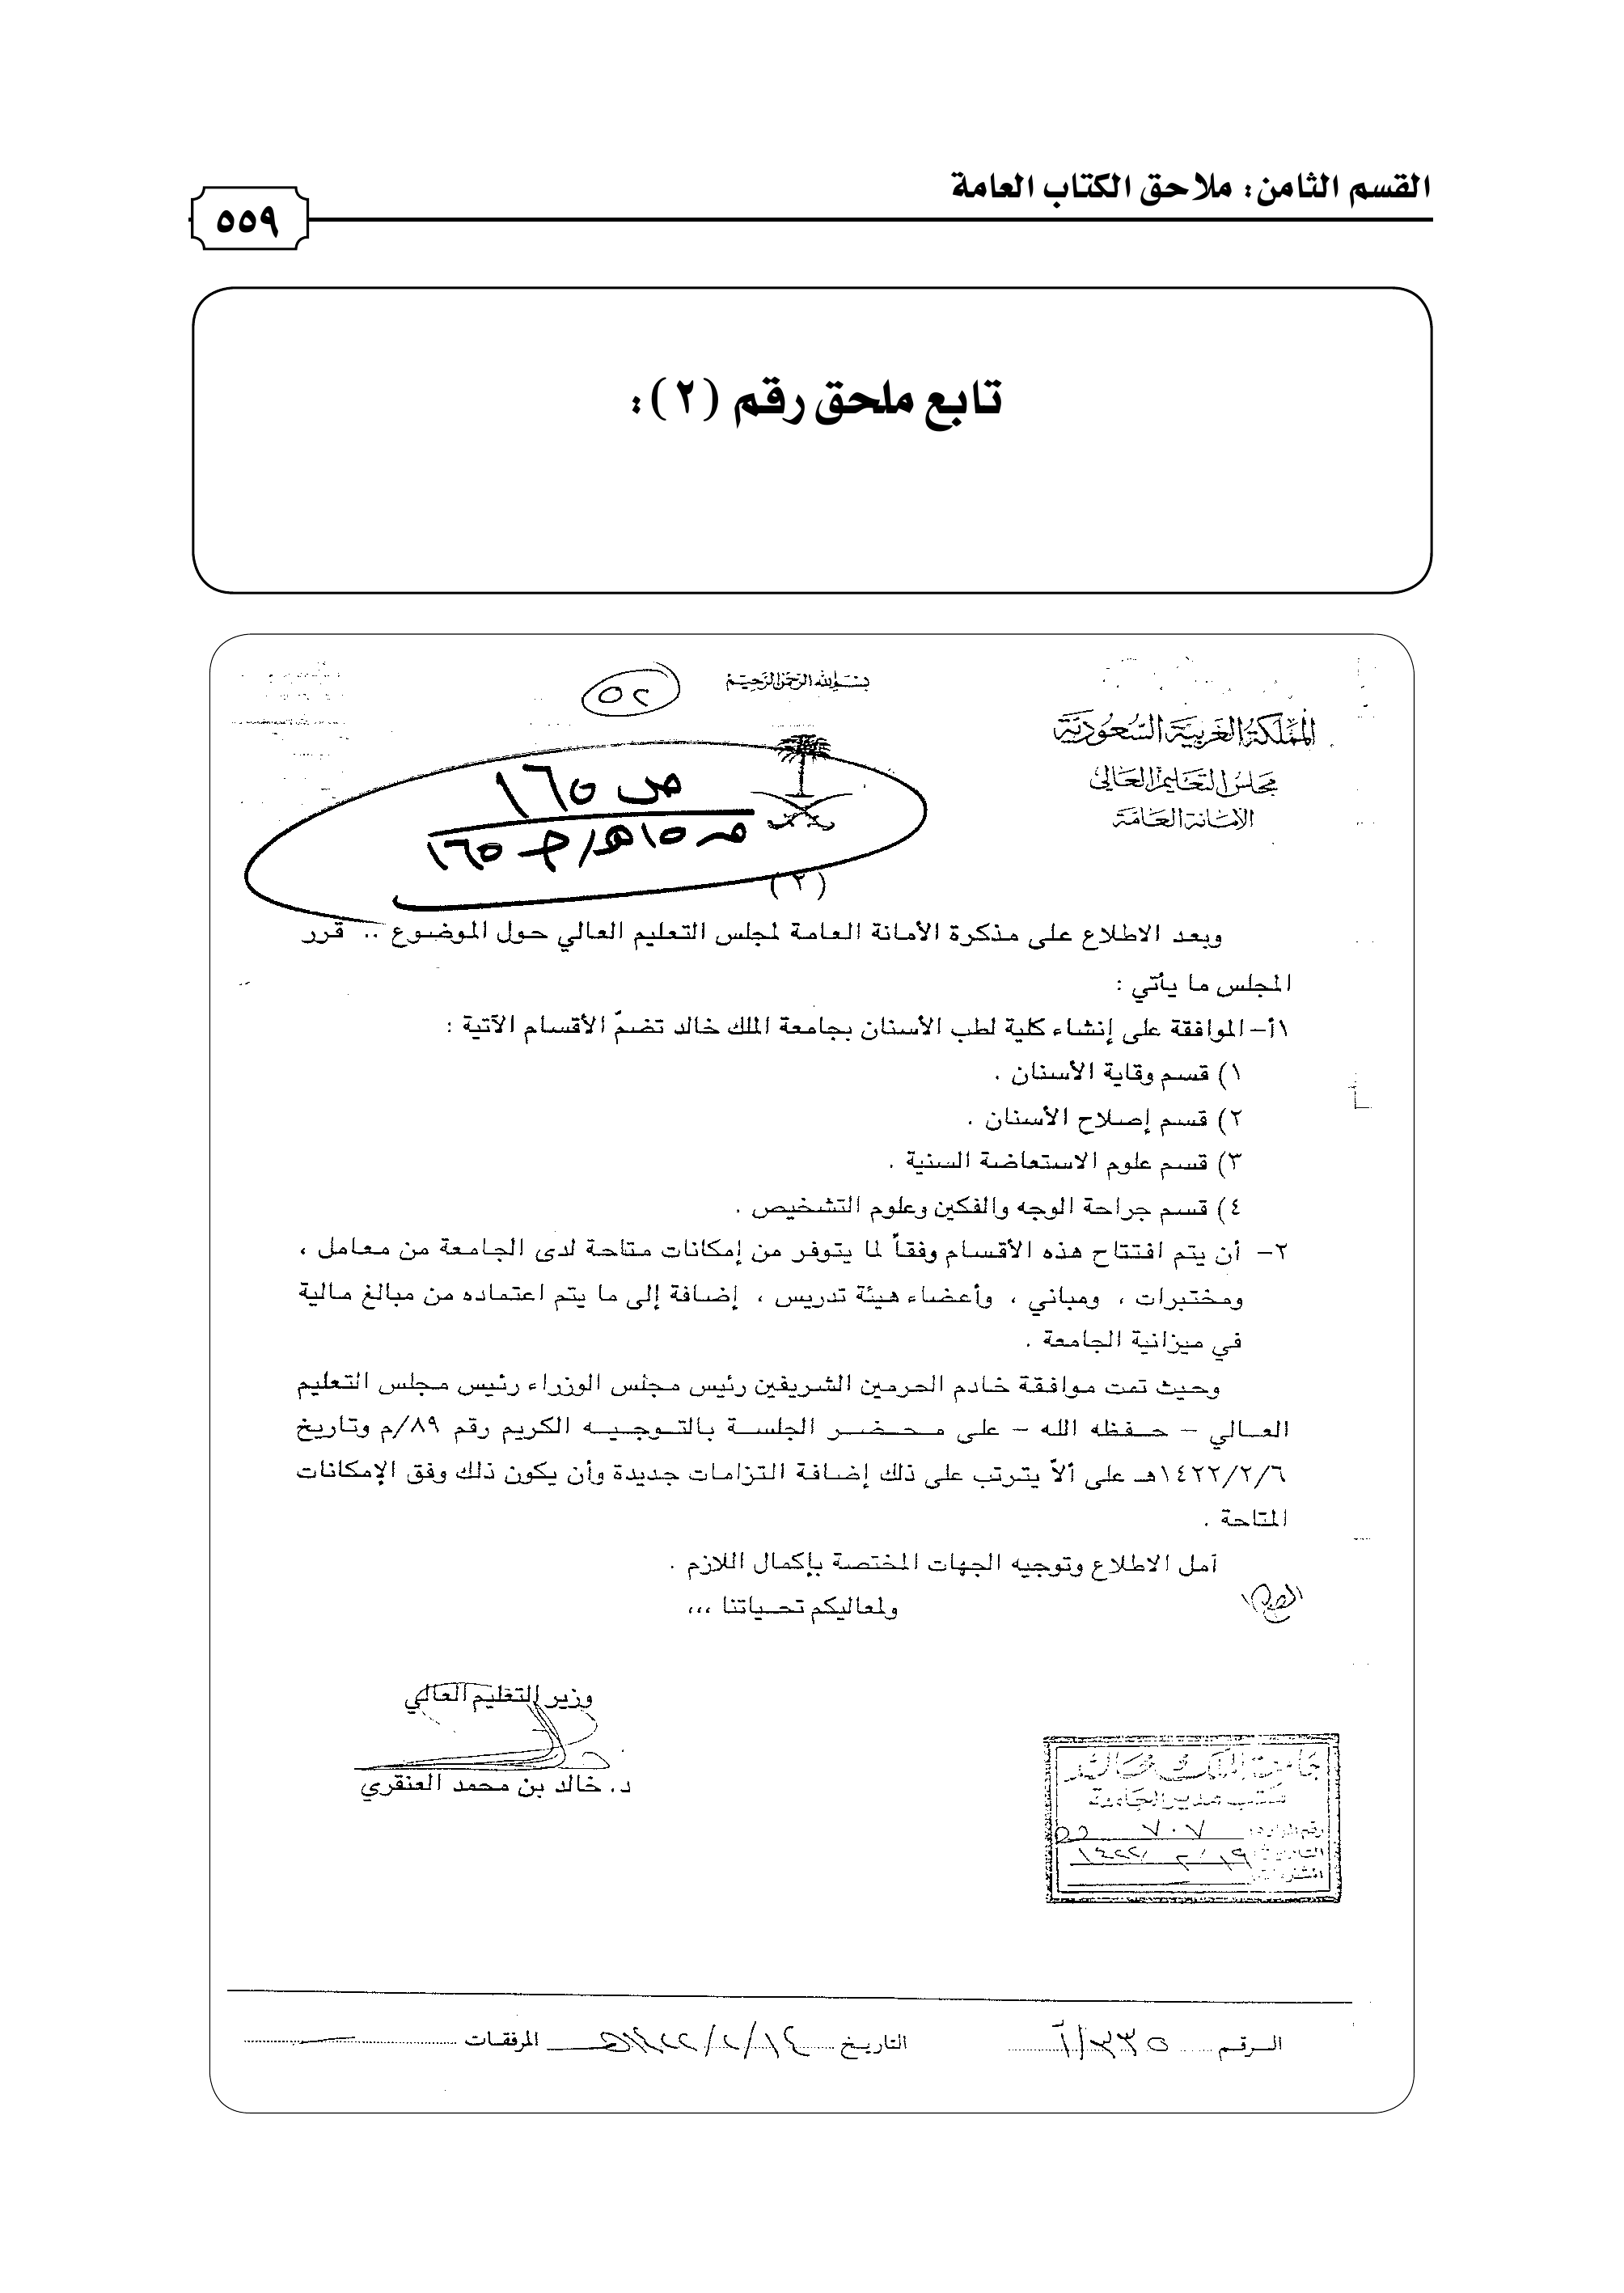 القسم الثامن: ملاحق الكتاب العامة
٥٥٩
تابع ملحق رقم (٢):
بسم الله الرحمن الرحيم
٥٢
المملكة العربية السعودية
مجلس التعليم العالي
الأمانة العامة
ص ١٦٥
(٢)
وبعد الاطلاع على مذكرة الأمانة العامة لمجلس التعليم العالي حول الموضوع .. قرر
المجلس ما يأتي :
١أ- الموافقة على إنشاء كلية لطب الأسنان بجامعة الملك خالد تضمّ الأقسام الآتية :
١) قسم وقاية الأسنان .
٢) قسم إصلاح الأسنان .
٣) قسم علوم الاستعاضة السنية .
٤) قسم جراحة الوجه والفكين وعلوم التشخيص .
٢- أن يتم افتتاح هذه الأقسام وفقاً لما يتوفر من إمكانات متاحة لدى الجامعة من معامل ،
ومختبرات ، ومباني ، وأعضاء هيئة تدريس ، إضافة إلى ما يتم اعتماده من مبالغ مالية
في ميزانية الجامعة .
وحيث تمت موافقة خادم الحرمين الشريفين رئيس مجلس الوزراء رئيس مجلس التعليم
العالي - حفظه الله - على محضر الجلسة بالتوجيه الكريم رقم ٨٩/م وتاريخ
١٤٢٢/٢/٦هـ على ألاّ يترتب على ذلك إضافة التزامات جديدة وأن يكون ذلك وفق الإمكانات
المتاحة .
آمل الاطلاع وتوجيه الجهات المختصة بإكمال اللازم .
ولمعاليكم تحياتنا ،،،
وزير التعليم العالي
د. خالد بن محمد العنقري
جامعة الملك خالد
مكتب مدير الجامعة
رقم الوارد: ٧٠٧
التاريخ: ١٩/٢/١٤٢٢
المشفوعات:
الرقم ٣٣٥/أ التاريخ ١٤/٢/١٤٢٢هـ المرفقات